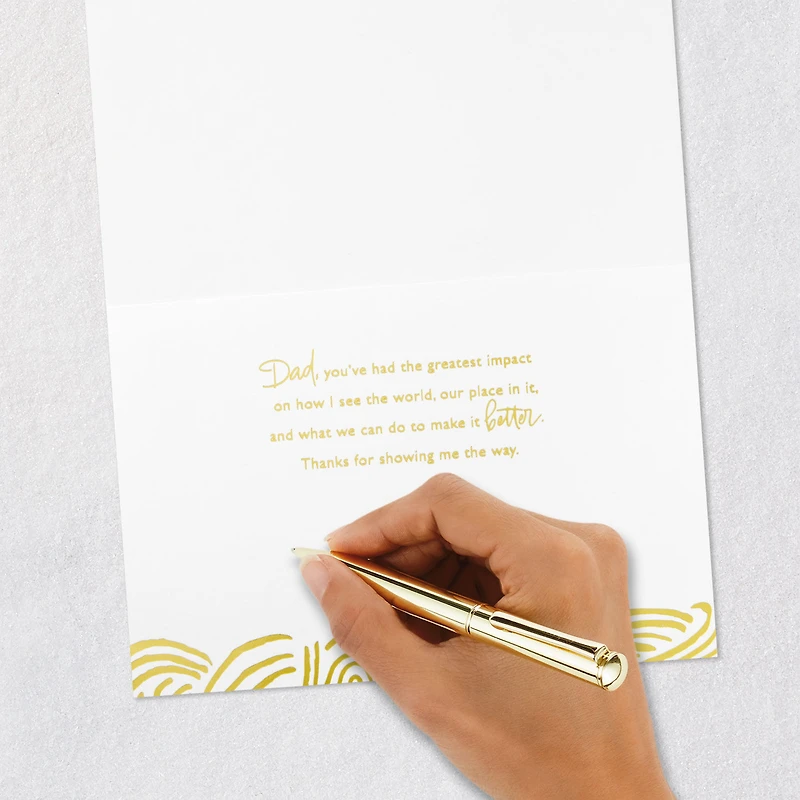 Dad, you've had the greatest impact
on how I see the world, our place in it,
and what we can do to make it better.
Thanks for showing me the way.